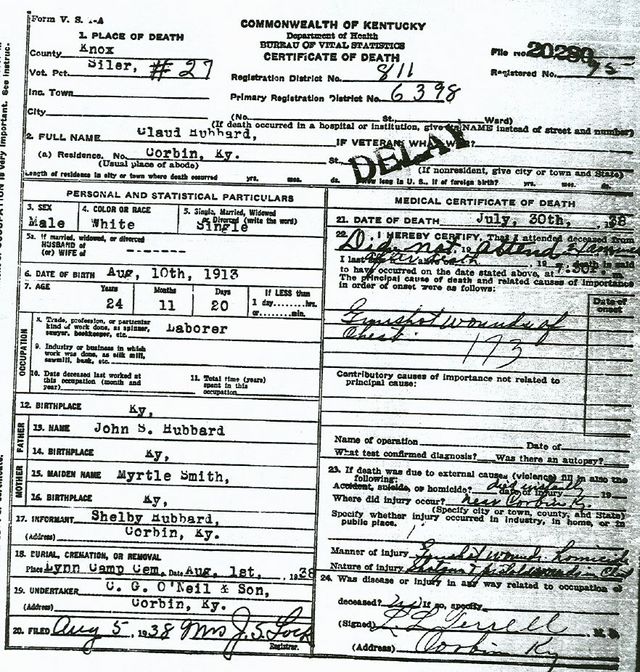 Form V. S.
COMMONWEALTH OF KENTUCKY
Department of Health
BUREAU OF VITAL STATISTICS
CERTIFICATE OF DEATH
File No. 20280
Registered No. 95
1. PLACE OF DEATH
County Knox
Vot. Pct. Siler, #27
Inc. Town
City
Registration District No. 811
Primary Registration District No. 6398
(No. St., Ward)
(If death occurred in a hospital or institution, give its NAME instead of street and number)
2. FULL NAME Claud Hubbard,
IF VETERAN, WHAT WAR?
DELAY
(a) Residence. No. Corbin, Ky. St.
(Usual place of abode)
(If nonresident, give city or town and State)
Length of residence in city or town where death occurred yrs. mos. ds. How long in U. S., if of foreign birth? yrs. mos. ds.
PERSONAL AND STATISTICAL PARTICULARS
3. SEX Male
4. COLOR OR RACE White
5. Single, Married, Widowed or Divorced (write the word) Single
5a. If married, widowed, or divorced
HUSBAND of
(or) WIFE of -------
6. DATE OF BIRTH Aug, 10th, 1913
7. AGE Years 24 Months 11 Days 20
If LESS than
1 day ...hrs.
or ...min.
OCCUPATION
8. Trade, profession, or particular kind of work done, as spinner, sawyer, bookkeeper, etc. Laborer
9. Industry or business in which work was done, as silk mill, sawmill, bank, etc.
10. Date deceased last worked at this occupation (month and year)
11. Total time (years) spent in this occupation
12. BIRTHPLACE Ky,
FATHER
13. NAME John S. Hubbard
14. BIRTHPLACE Ky,
MOTHER
15. MAIDEN NAME Myrtle Smith,
16. BIRTHPLACE Ky,
17. INFORMANT Shelby Hubbard,
(Address) Corbin, Ky.
18. BURIAL, CREMATION, OR REMOVAL
Place Lynn Camp Cem, Date Aug, 1st, 1938
19. UNDERTAKER C. G. O'Neil & Son,
(Address) Corbin, Ky.
20. FILED Aug 5, 1938 Mrs J. S. Lock
Registrar.
MEDICAL CERTIFICATE OF DEATH
21. DATE OF DEATH July, 30th, 38
22. I HEREBY CERTIFY, That I attended deceased from
Did not attend
I last
after death
to have occurred on the date stated above, at 7:30
The principal cause of death and related causes of importance in order of onset were as follows:
Date of onset
Gunshot wounds of
Chest
173
Contributory causes of importance not related to principal cause:
Name of operation Date of
What test confirmed diagnosis? Was there an autopsy?
23. If death was due to external causes (violence) fill in also the following:
Accident, suicide, or homicide? Date of injury 19
Where did injury occur? near Corbin
(Specify city or town, county, and State)
Specify whether injury occurred in industry, in home, or in public place.
Manner of injury Gunshot wounds Homicide
Nature of injury
24. Was disease or injury in any way related to occupation of deceased? No If so, specify
(Signed) L L Terrell M. D.
(Address) Corbin Ky